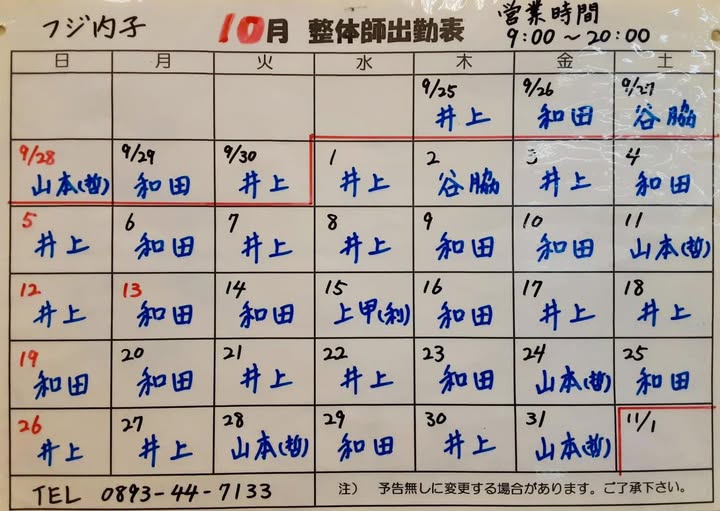 フジ内子 10月 整体師出勤表 営業時間
9:00〜20:00
日 月 火 水 木 金 土
9/25 9/26 9/27
井上 和田 谷脇
9/28 9/29 9/30 1 2 3 4
山本(哲) 和田 井上 井上 谷脇 井上 和田
5 6 7 8 9 10 11
井上 和田 井上 井上 和田 和田 山本(哲)
12 13 14 15 16 17 18
井上 和田 和田 上甲(利) 和田 井上 井上
19 20 21 22 23 24 25
和田 和田 井上 井上 和田 山本(哲) 和田
26 27 28 29 30 31 11/1
井上 井上 山本(哲) 和田 井上 山本(哲)
TEL 0893-44-7133 注) 予告無しに変更する場合があります。ご了承下さい。